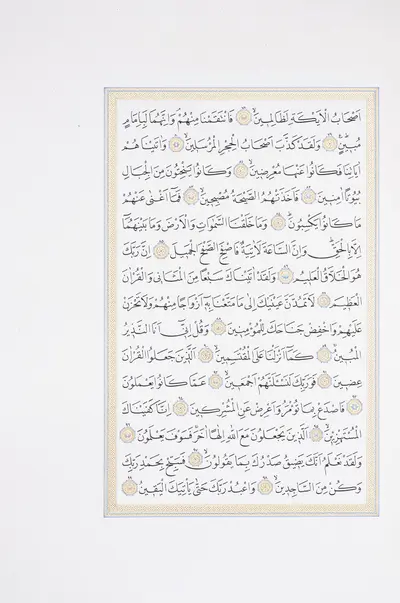 اَصْحَابُ الْاَيْكَةِ لَظَالِمِينَ فَانْتَقَمْنَا مِنْهُمْ وَاِنَّهُمَا لَبِاِمَامٍ
مُبِينٍ وَلَقَدْ كَذَّبَ اَصْحَابُ الْحِجْرِ الْمُرْسَلِينَ وَاٰتَيْنَاهُمْ
اٰيَاتِنَا فَكَانُوا عَنْهَا مُعْرِضِينَ وَكَانُوا يَنْحِتُونَ مِنَ الْجِبَالِ
بُيُوتًا اٰمِنِينَ فَاَخَذَتْهُمُ الصَّيْحَةُ مُصْبِحِينَ فَمَا اَغْنٰى عَنْهُمْ
مَا كَانُوا يَكْسِبُونَ وَمَا خَلَقْنَا السَّمٰوَاتِ وَالْاَرْضَ وَمَا بَيْنَهُمَا
اِلَّا بِالْحَقِّ وَاِنَّ السَّاعَةَ لَاٰتِيَةٌ فَاصْفَحِ الصَّفْحَ الْجَمِيلَ اِنَّ رَبَّكَ
هُوَ الْخَلَّاقُ الْعَلِيمُ وَلَقَدْ اٰتَيْنَاكَ سَبْعًا مِنَ الْمَثَانِى وَالْقُرْاٰنَ
الْعَظِيمَ لَا تَمُدَّنَّ عَيْنَيْكَ اِلٰى مَا مَتَّعْنَا بِهِ اَزْوَاجًا مِنْهُمْ وَلَا تَحْزَنْ
عَلَيْهِمْ وَاخْفِضْ جَنَاحَكَ لِلْمُؤْمِنِينَ وَقُلْ اِنِّى اَنَا النَّذِيرُ
الْمُبِينُ كَمَا اَنْزَلْنَا عَلَى الْمُقْتَسِمِينَ اَلَّذِينَ جَعَلُوا الْقُرْاٰنَ
عِضِينَ فَوَرَبِّكَ لَنَسْـَٔلَنَّهُمْ اَجْمَعِينَ عَمَّا كَانُوا يَعْمَلُونَ
فَاصْدَعْ بِمَا تُؤْمَرُ وَاَعْرِضْ عَنِ الْمُشْرِكِينَ اِنَّا كَفَيْنَاكَ
الْمُسْتَهْزِئِينَ اَلَّذِينَ يَجْعَلُونَ مَعَ اللّٰهِ اِلٰهًا اٰخَرَ فَسَوْفَ يَعْلَمُونَ
وَلَقَدْ نَعْلَمُ اَنَّكَ يَضِيقُ صَدْرُكَ بِمَا يَقُولُونَ فَسَبِّحْ بِحَمْدِ رَبِّكَ
وَكُنْ مِنَ السَّاجِدِينَ وَاعْبُدْ رَبَّكَ حَتّٰى يَاْتِيَكَ الْيَقِينُ